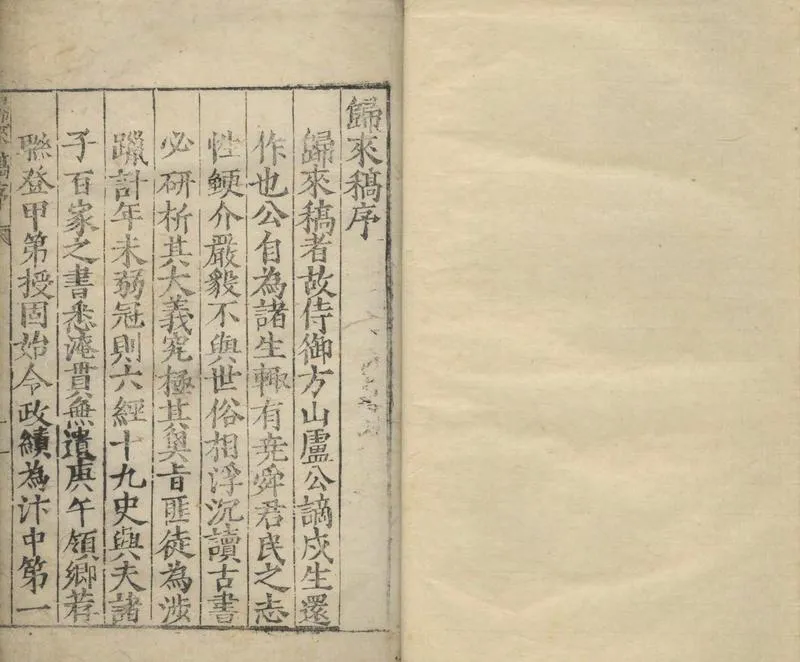 歸來稿序
歸來稿者故侍御方山盧公謫戍生還
作也公自為諸生輙有堯舜君民之志
性鯁介嚴毅不與世俗相浮沉讀古書
必研析其大義究極其奧旨匪徒為涉
躐計年未弱冠則六經十九史與夫諸
子百家之書悉淹貫無遺庚午領鄉荐
聯登甲第授固始令政績為汴中第一